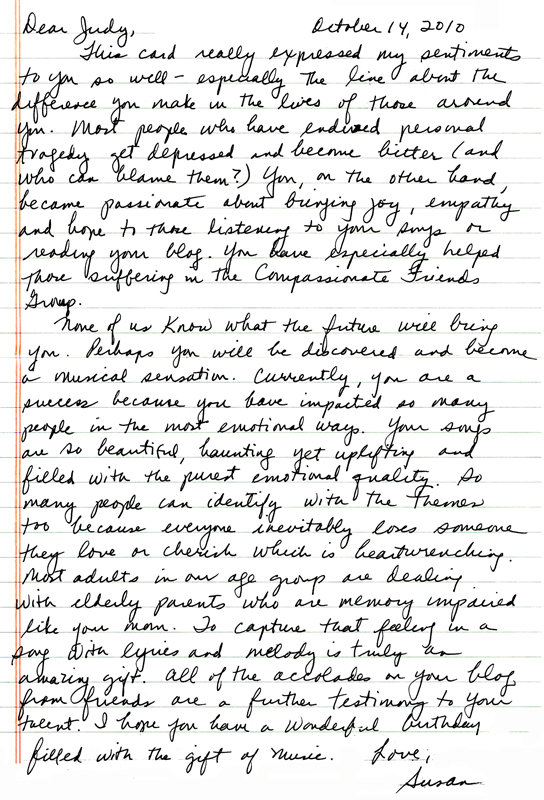 Dear Judy, October 14, 2010
This card really expressed my sentiments
to you so well - especially the line about the
difference you make in the lives of those around
you. Most people who have endured personal
tragedy get depressed and become bitter (and
who can blame them?) You, on the other hand,
became passionate about bringing joy, empathy
and hope to those listening to your songs or
reading your blog. You have especially helped
those suffering in the Compassionate Friends
Group.
None of us know what the future will bring
you. Perhaps you will be discovered and become
a musical sensation. Currently, you are a
success because you have impacted so many
people in the most emotional ways. Your songs
are so beautiful, haunting yet uplifting and
filled with the purest emotional quality. So
many people can identify with the themes
too because everyone inevitably loses someone
they love or cherish which is heartwrenching.
Most adults in our age group are dealing
with elderly parents who are memory impaired
like your mom. To capture that feeling in a
song with lyrics and melody is truly an
amazing gift. All of the accolades on your blog
from friends are a further testimony to your
talent. I hope you have a wonderful birthday
filled with the gift of music. Love,
Susan